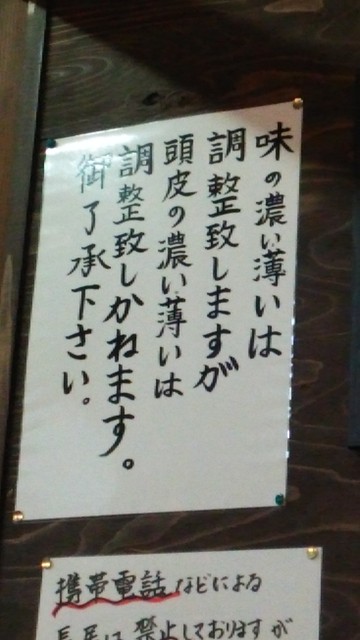 味の濃い薄いは
調整致しますが
頭皮の濃い薄いは
調整致しかねます。
御了承下さい。
携帯電話などによる
長居は禁止しておりますが